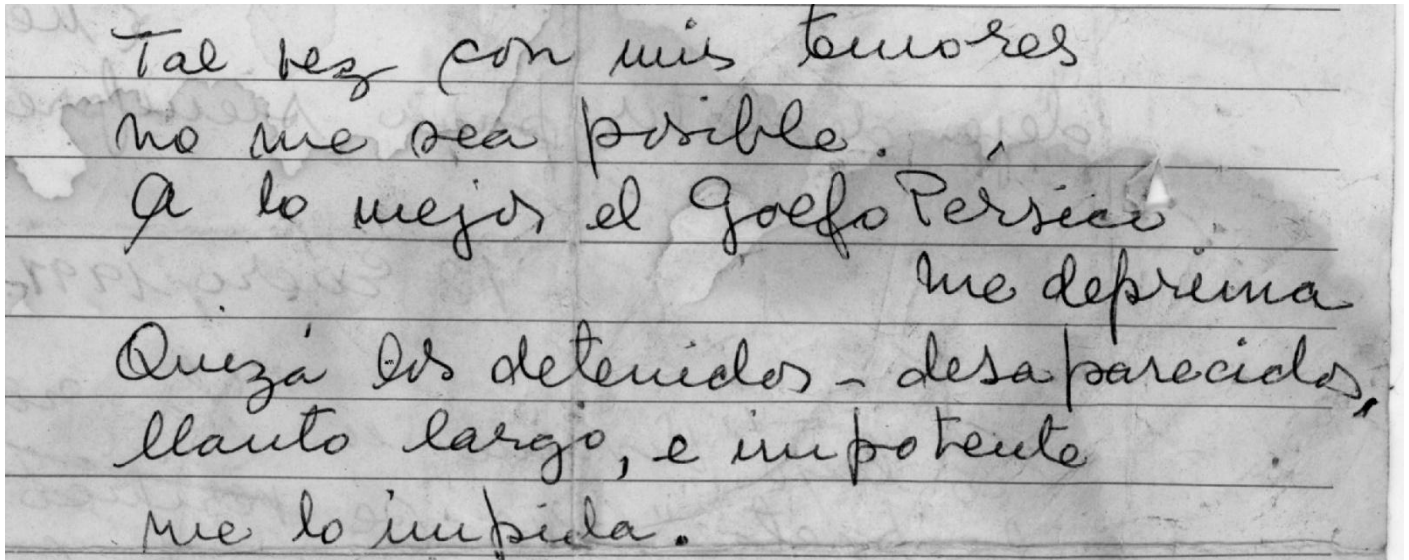 Tal vez con mis temores
no me sea posible.
A lo mejor el Golfo Pérsico
me deprima
Quizá los detenidos - desaparecidos,
llanto largo, e impotente
me lo impida.